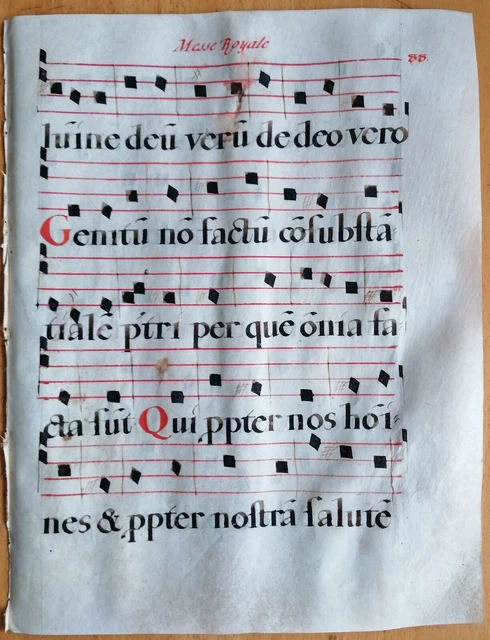 Messe Royale
lumine deū verū de deo vero
Genitū nō factū cōsubstā
tialē ptri per quē ōnia fa
cta sūt Qui ppter nos hoī-
nes & ppter nostrā salutē